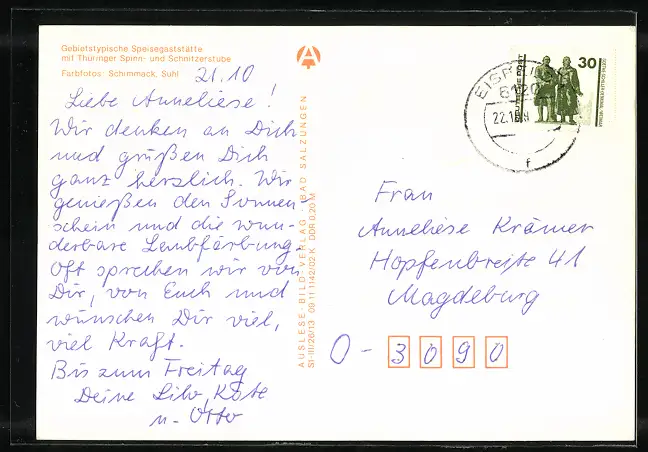 Gebietstypische Speisegaststätte
mit Thüringer Spinn- und Schnitzerstube
Farbfotos: Schimmack, Suhl
21.10
Liebe Anneliese!
Wir denken an Dich
und grüßen Dich
ganz herzlich. Wir
genießen den Sonnen-
schein und die wun-
derbare Laubfärbung.
Oft sprechen wir von
Dir, von Euch und
wünschen Dir viel,
viel Kraft.
Bis zum Freitag
Deine Käte
u. Otto
AUSLESE-BILD-VERLAG · BAD SALZUNGEN
S1-III/26/13 09 11 1142/02 K DDR 0,20 M
30
DEUTSCHE POST
22.10.9
f
Frau
Anneliese Krämer
Hopfenbreite 41
Magdeburg
O - 3090